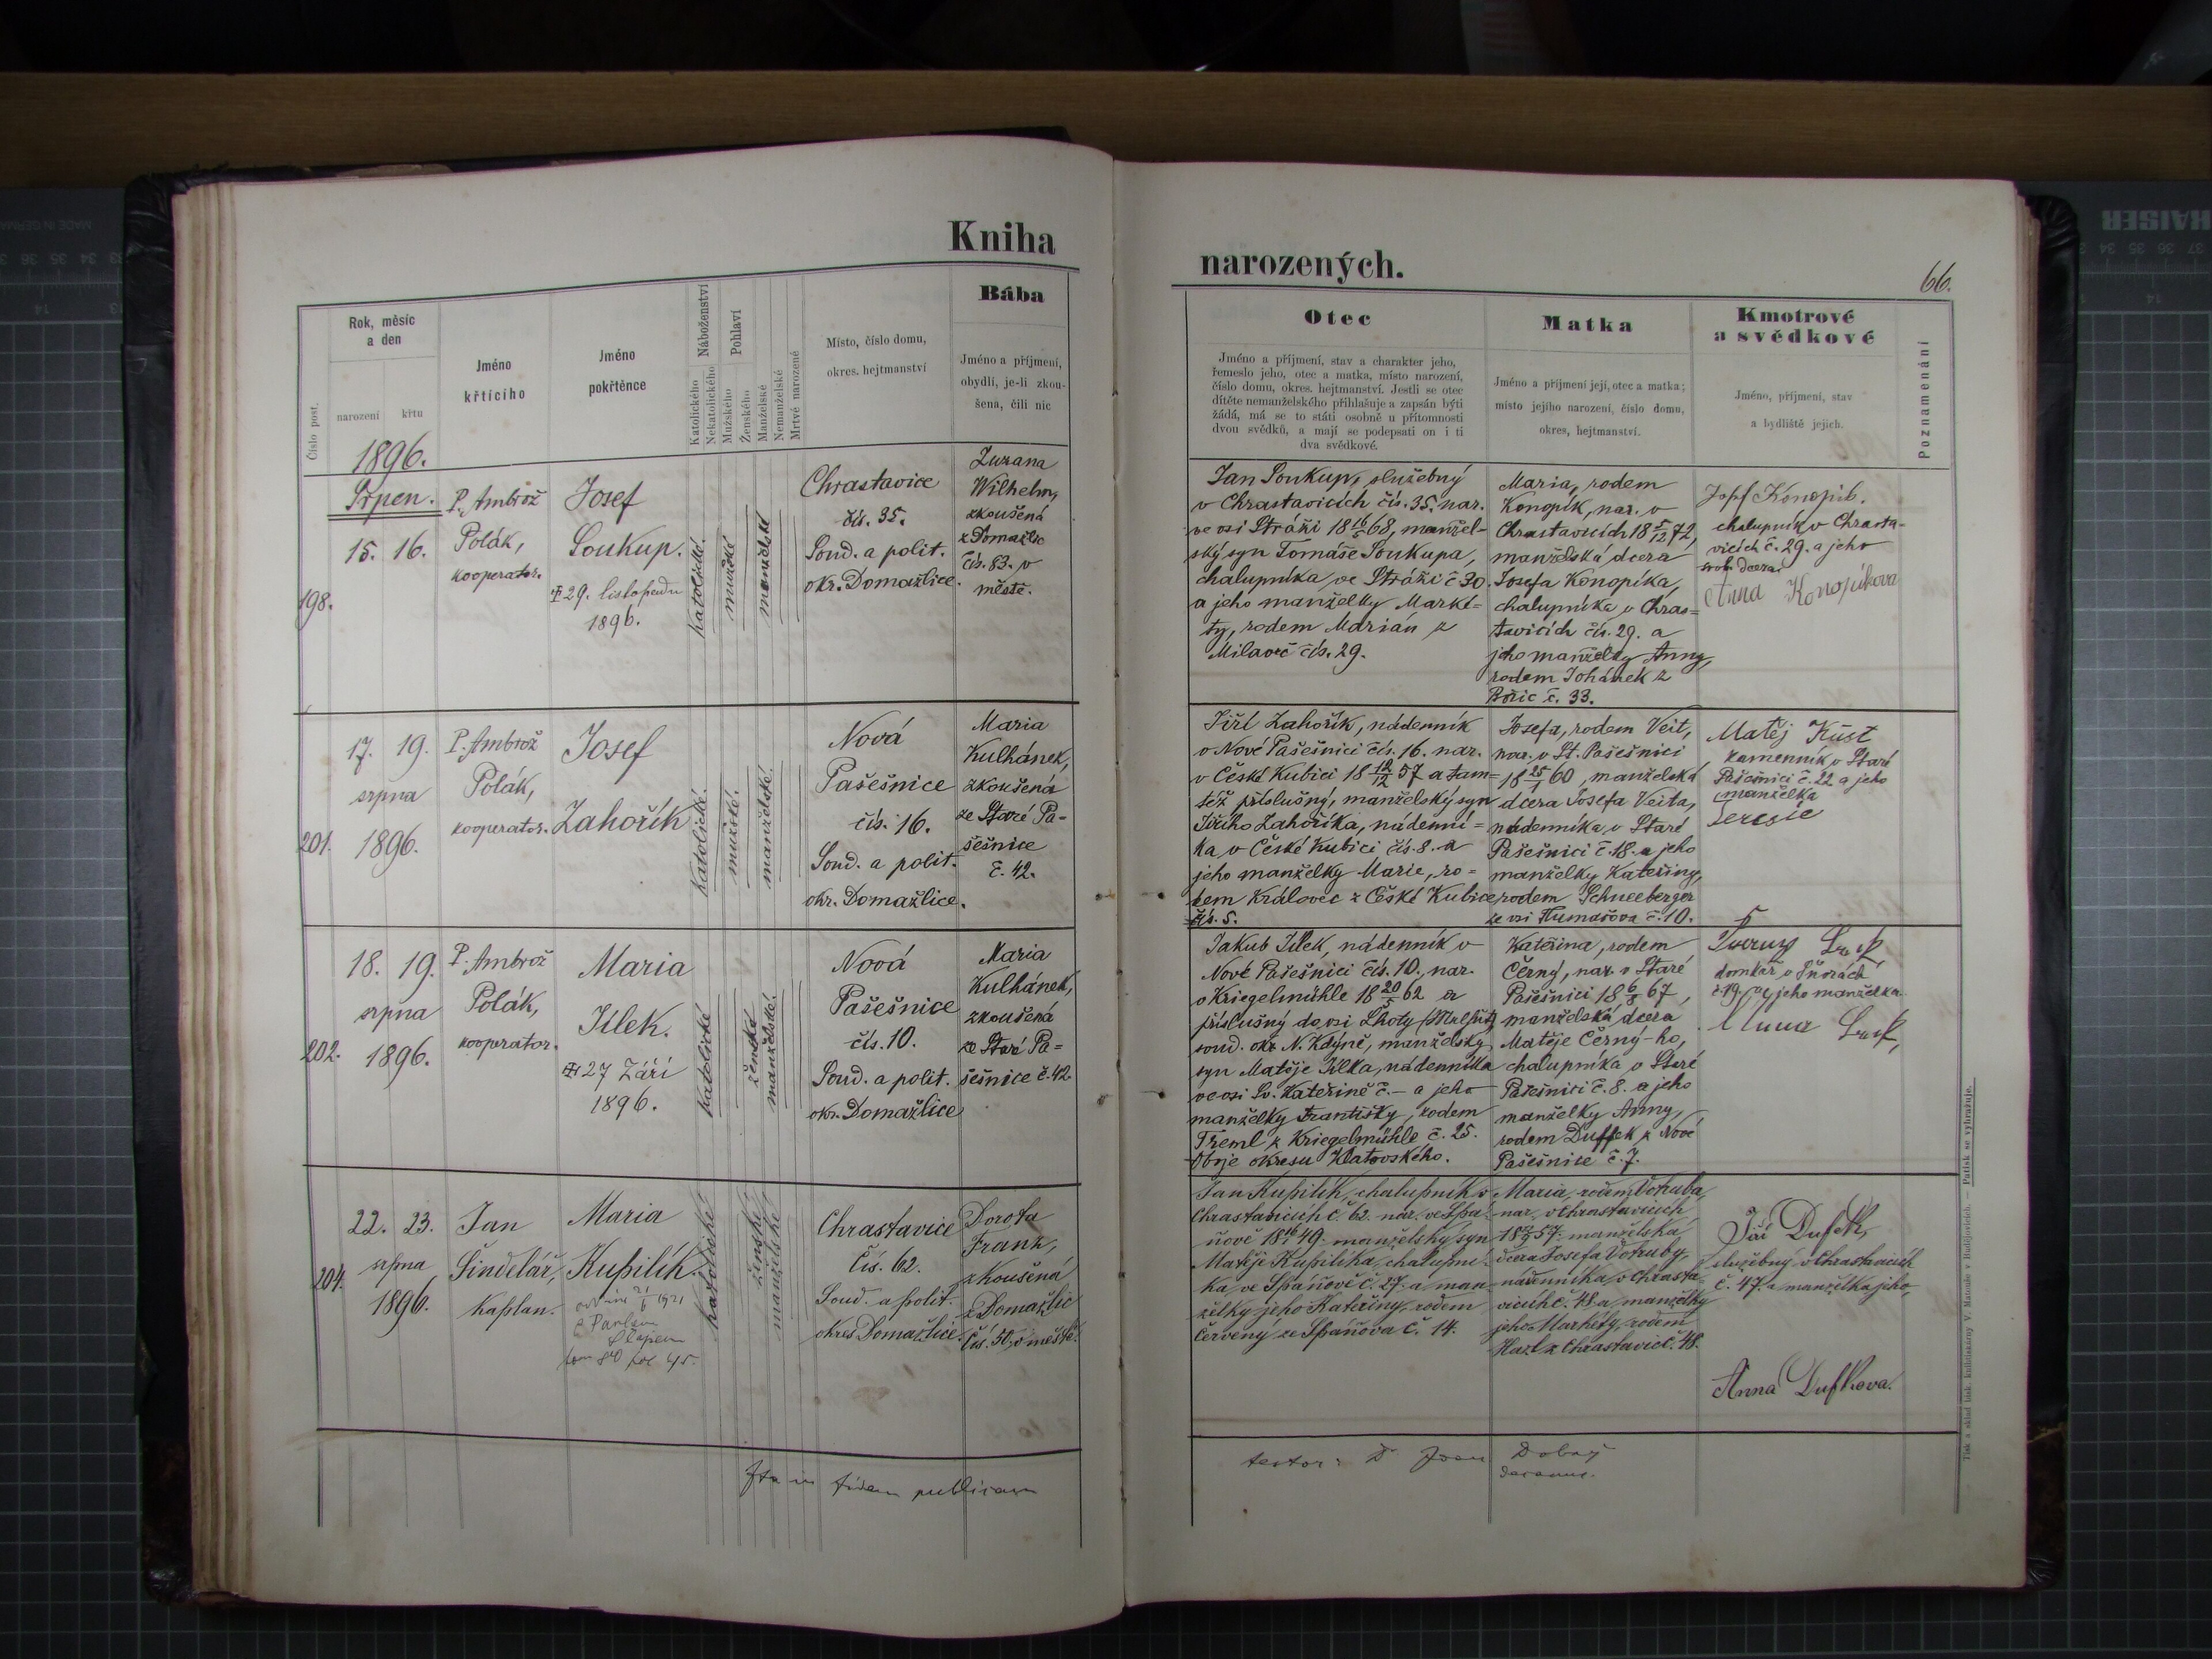 Kniha
Rok, měsíc
a den
narození
křtu
Číslo post.
Jméno
křtícího
Jméno
pokřtěnce
Náboženství
Katolického
Nekatolického
Pohlaví
Mužského
Ženského
Manželské
Nemanželské
Mrtvě narozené
Místo, číslo domu,
okres. hejtmanství
Bába
Jméno a příjmení,
obydlí, je-li zkou-
šena, čili nic
1896.
Srpen.
15. 16.
198.
P. Ambrož
Polák,
kooperator.
Josef
Soukup.
29. listopadu
1896.
katolické.
mužské
manželské
Chrastavice
čís. 35.
Soud. a polit.
okr. Domažlice.
Zuzana
Wilhelm,
zkoušená
z Domažlic
čís. 83. v
městě.
17. 19.
srpna
201. 1896.
P. Ambrož
Polák,
kooperator.
Josef
Zahořík
katolické.
mužské.
manželské.
Nová
Pašešnice
čís. 16.
Soud. a polit.
okr. Domažlice.
Maria
Kulhánek,
zkoušená
ze Staré Pa-
šešnice
č. 42.
18. 19.
srpna
202. 1896.
P. Ambrož
Polák,
kooperator.
Maria
Jílek.
27 Září
1896.
katolické
ženské
manželské.
Nová
Pašešnice
čís. 10.
Soud. a polit.
okr. Domažlice
Maria
Kulhánek,
zkoušená
ze Staré Pa=
šešnice č. 42.
22. 23.
srpna
204. 1896.
Jan
Šindelář,
kaplan.
Maria
Kupilík.
1921
katolické
ženské
manželské
Chrastavice
Čís. 62.
Soud. a polit.
okres Domažlice.
Dorota
Frank,
zkoušená
z Domažlic
Čís. 50, v městě.
in fidem publicam
narozených.
66.
Otec
Jméno a příjmení, stav a charakter jeho,
řemeslo jeho, otec a matka, místo narození,
číslo domu, okres. hejtmanství. Jestli se otec
dítěte nemanželského přihlašuje a zapsán býti
žádá, má se to státi osobně u přítomnosti
dvou svědků, a mají se podepsati on i ti
dva svědkové.
Matka
Jméno a příjmení její, otec a matka;
místo jejího narození, číslo domu,
okres, hejtmanství.
Kmotrové
a svědkové
Jméno, příjmení, stav
a bydliště jejich.
Poznamenání
Jan Soukup, služebný
v Chrastavicích čís. 35. nar.
ve vsi Stráži 18 16/5 68, manžel-
ský syn Tomáše Soukupa,
chalupníka ve Stráži č 30.
a jeho manželky Marké-
ty, rodem Marián z
Milavč čís. 29.
Maria, rodem
Konopík, nar. v
Chrastavicích 18 5/12 72,
manželská dcera
Josefa Konopíka,
chalupníka v Chras=
tavicích čís. 29. a
jeho manželky Anny,
rodem Johánek z
Bořic č. 33.
Josef Konopík.
chalupník v Chrasta-
vicích č. 29. a jeho
svob. dcera
Anna Konopíkova
Jiří Zahořík, nádenník
v Nové Pašešnici čís. 16. nar.
v České Kubici 18 12/12 57 a tam=
též příslušný, manželský syn
Jiřího Zahoříka, nádenní=
ka v České Kubici čís. 8. a
jeho manželky Marie, ro=
dem Královec z České Kubice
čís. 5.
Josefa, rodem Veit,
nar. v St. Pašešnici
18 25/1 60, manželská
dcera Josefa Veita,
nádenníka, v Staré
Pašešnici č. 18. a jeho
manželky Kateřiny,
rodem Schneeberger
ze vsi Flumašova č. 10.
Matěj Küst
kamenník v Staré
Pašešnici č. 22 a jeho
manželka
Teresie
Jakub Jílek, nádenník v
Nové Pašešnici čís. 10., nar.
v Kriegelmühle 18 20/5 62 a
příslušný do vsi Lhoty
soud. okr. N. Kdyně, manželský
syn Matěje Jílka, nádenníka
ve vsi Sv. Kateřině č. – a jeho
manželky Františky, rodem
Treml z Kriegelmühle č. 25.
Obje okresu Klatovského.
Kateřina, rodem
Černý, nar. v Staré
Pašešnici 18 6/8 67,
manželská dcera
Matěje Černý-ho,
chalupníka v Staré
Pašešnici č. 8. a jeho
manželky Anny,
rodem Duffek z Nové
Pašešnice č. 7.
domkář v
č. 19. a jeho manželka
Anna
Jan Kupilík, chalupník v
Chrastavicích č. 62. nar. ve Špá-
ňově 18 16/1 49. manželský syn
Matěje Kupilíka, chalupní-
ka, ve Špáňově č. 27. a man-
želky jeho Kateřiny, rodem
Červený ze Špáňova č. 14.
Maria, rodem Votruba,
nar. v Chrastavicích
manželská
dcera Josefa Votruby,
nádenníka, v Chrasta-
vicích č. 48 a manželky
jeho Markéty, rodem
Hazl z Chrastavic č. 48.
Jiří Dufek,
služebný v Chrastavicích
č. 47. a manželka jeho,
Anna Dufkova.
testor: Joan Dobrý
decanus.
Tisk a sklad tisk. knihtiskárny V. Matouše v Budějovicích. — Patisk se vyhražuje.